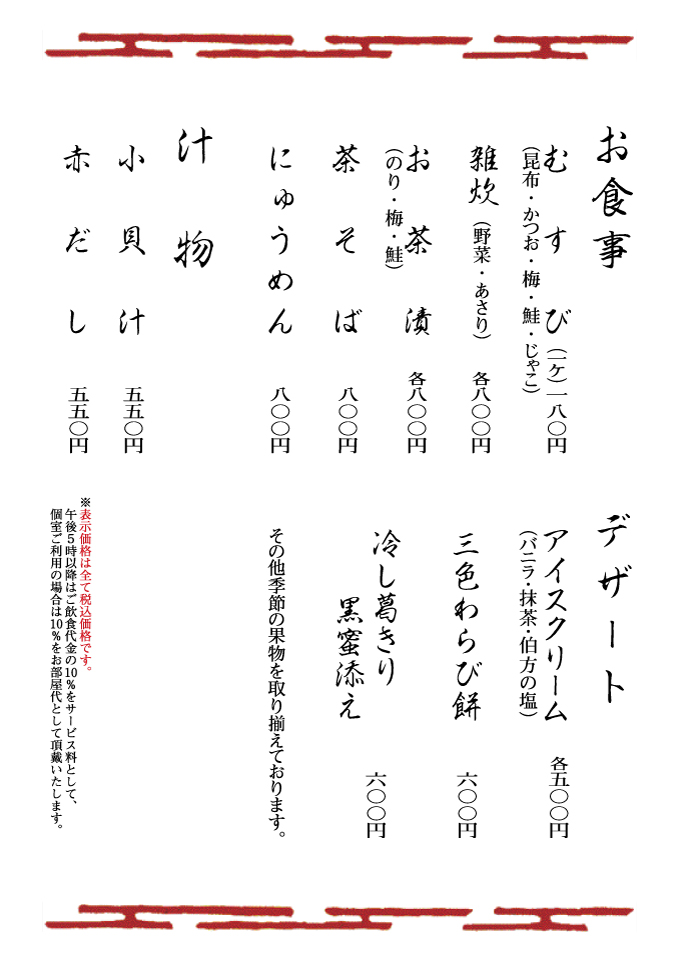 お食事
むすび（一ケ）一八〇円
（昆布・かつお・梅・鮭・じゃこ）
雑炊（野菜・あさり）各八〇〇円
お茶漬 各八〇〇円
（のり・梅・鮭）
茶そば 八〇〇円
にゅうめん 八〇〇円
汁物
小貝汁 五五〇円
赤だし 五五〇円
デザート
アイスクリーム 各五〇〇円
（バニラ・抹茶・伯方の塩）
三色わらび餅 六〇〇円
冷し葛きり 六〇〇円
黒蜜添え
その他季節の果物を取り揃えております。
※表示価格は全て税込価格です。
午後5時以降はご飲食代金の10％をサービス料として、
個室ご利用の場合は10％をお部屋代として頂戴いたします。